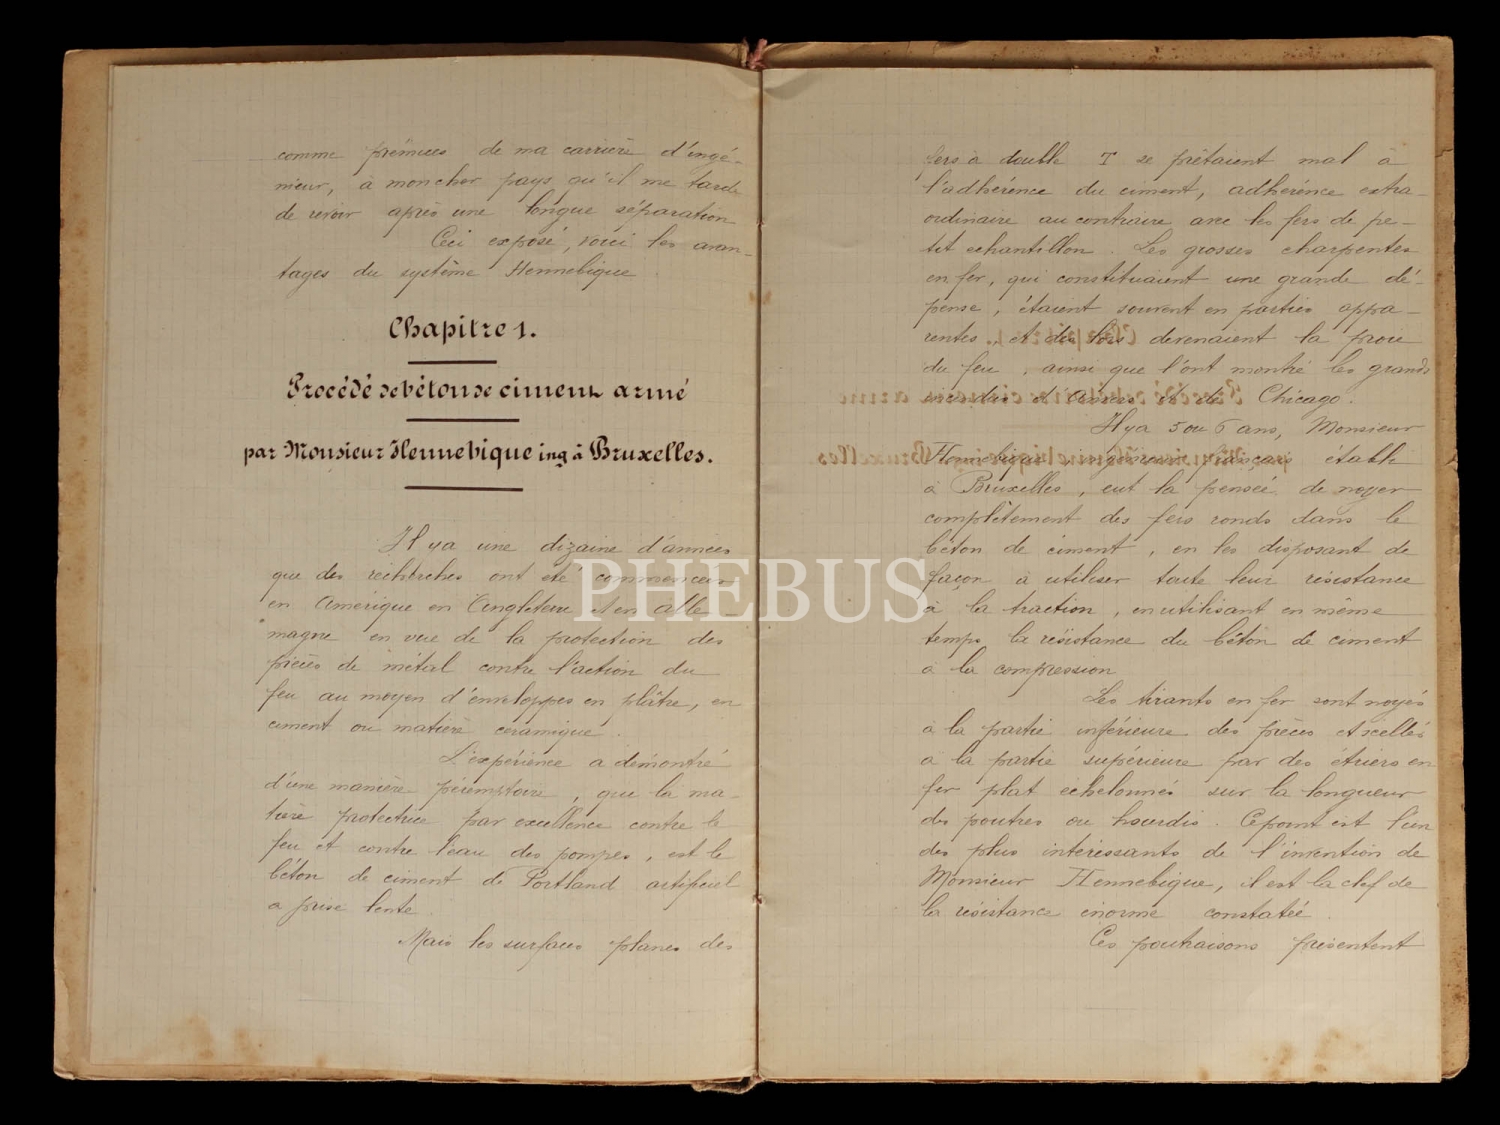 comme prémices de ma carrière d'ingé-
nieur, à mon cher pays qu'il me tarde
de revoir après une longue séparation
Ceci exposé, voici les avan-
tages du système Hennebique
Chapitre 1.
Procédé de béton de ciment armé
par Monsieur Hennebique ing à Bruxelles.
Il y a une dizaine d'années
que des recherches ont été commencées
en Amérique en Angleterre et en Alle-
magne en vue de la protection des
pièces de métal contre l'action du
feu au moyen d'enveloppes en plâtre, en
ciment ou matière céramique.
L'expérience a démontré
d'une manière péremptoire, que la ma-
tière protectrice par excellence contre le
feu et contre l'eau des pompes, est le
béton de ciment de Portland artificiel
a prise lente
Mais les surfaces planes des
fers à double T se prêtaient mal à
l'adhérence du ciment, adhérence extra-
ordinaire au contraire avec les fers de pe-
tit echantillon. Les grosses charpentes
en fer, qui constituaient une grande dé-
pense, étaient souvent en parties appa-
rentes, et dès lors devenaient la proie
du feu, ainsi que l'ont montré les grands
incendies d'Anvers et de Chicago.
Il y a 5 ou 6 ans, Monsieur
Hennebique, ingénieur français établi
à Bruxelles, eut la pensée de noyer
complètement des fers ronds dans le
béton de ciment, en les disposant de
façon à utiliser toute leur résistance
à la traction, en utilisant en même
temps la résistance du béton de ciment
a la compression
Les tirants en fer sont noyés
à la partie inférieure des pièces et scellés
a la partie supérieure par des étriers en
fer plat échelonnés sur la longueur
des poutres ou hourdis. Ce point est l'un
des plus intéressants de l'invention de
Monsieur Hennebique, il est la clef de
la résistance énorme constatée.
Ces poutraisons présentent
PHEBUS